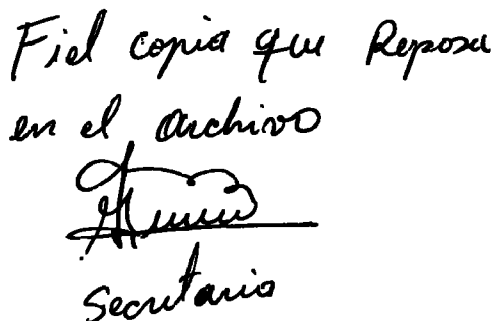 Fiel copia que Reposa
en el archivo
Secretario